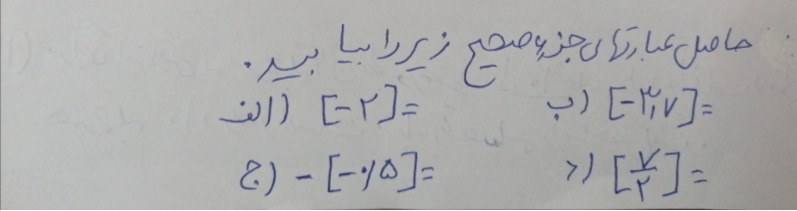 حاصل عبارتهای جزء صحیح زیر را بیابید.
الف) [-۲]= ب) [-۳٫۷]=
ج) -[-۰٫۵]= د) [۷/۲]=